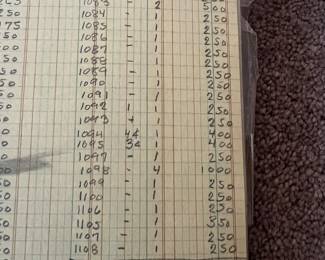 1083 - 2 500
250 1084 - 1 250
175 1085 - 1 250
1086 - 1 250
1087 - 1 250
1088 - 1 250
50 1089 - 1 250
50 1090 - 1 250
50 1091 - 1 250
50 1092 1 - 250
1093 + 1 250
1094 44 1 400
1095 34 1 400
1097 - 1 250
1098 - 4 1000
1099 - 1 250
1100 - 1 250
1106 - 1 250
1105 - 1 350
1107 - 1 250
1108 - 1 250